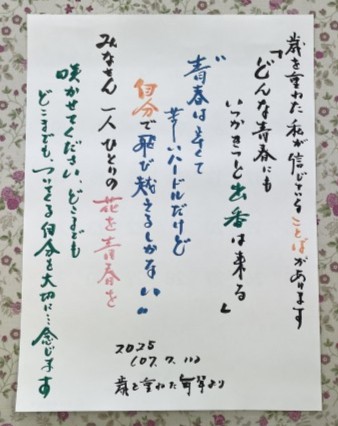 歳を重ねた 私が信じている ことばがあります
「どんな青春にも
いつかきっと出番は来る」
"青春は くて
ハードルだけど
自分で飛び越えるしかない"
みなさん 一人ひとりの 花を青春を
咲かせてください。どこまでも
どこまでも、ついてくる自分を大切に…念じます
2025
(07.7.11)
歳を重ねた より